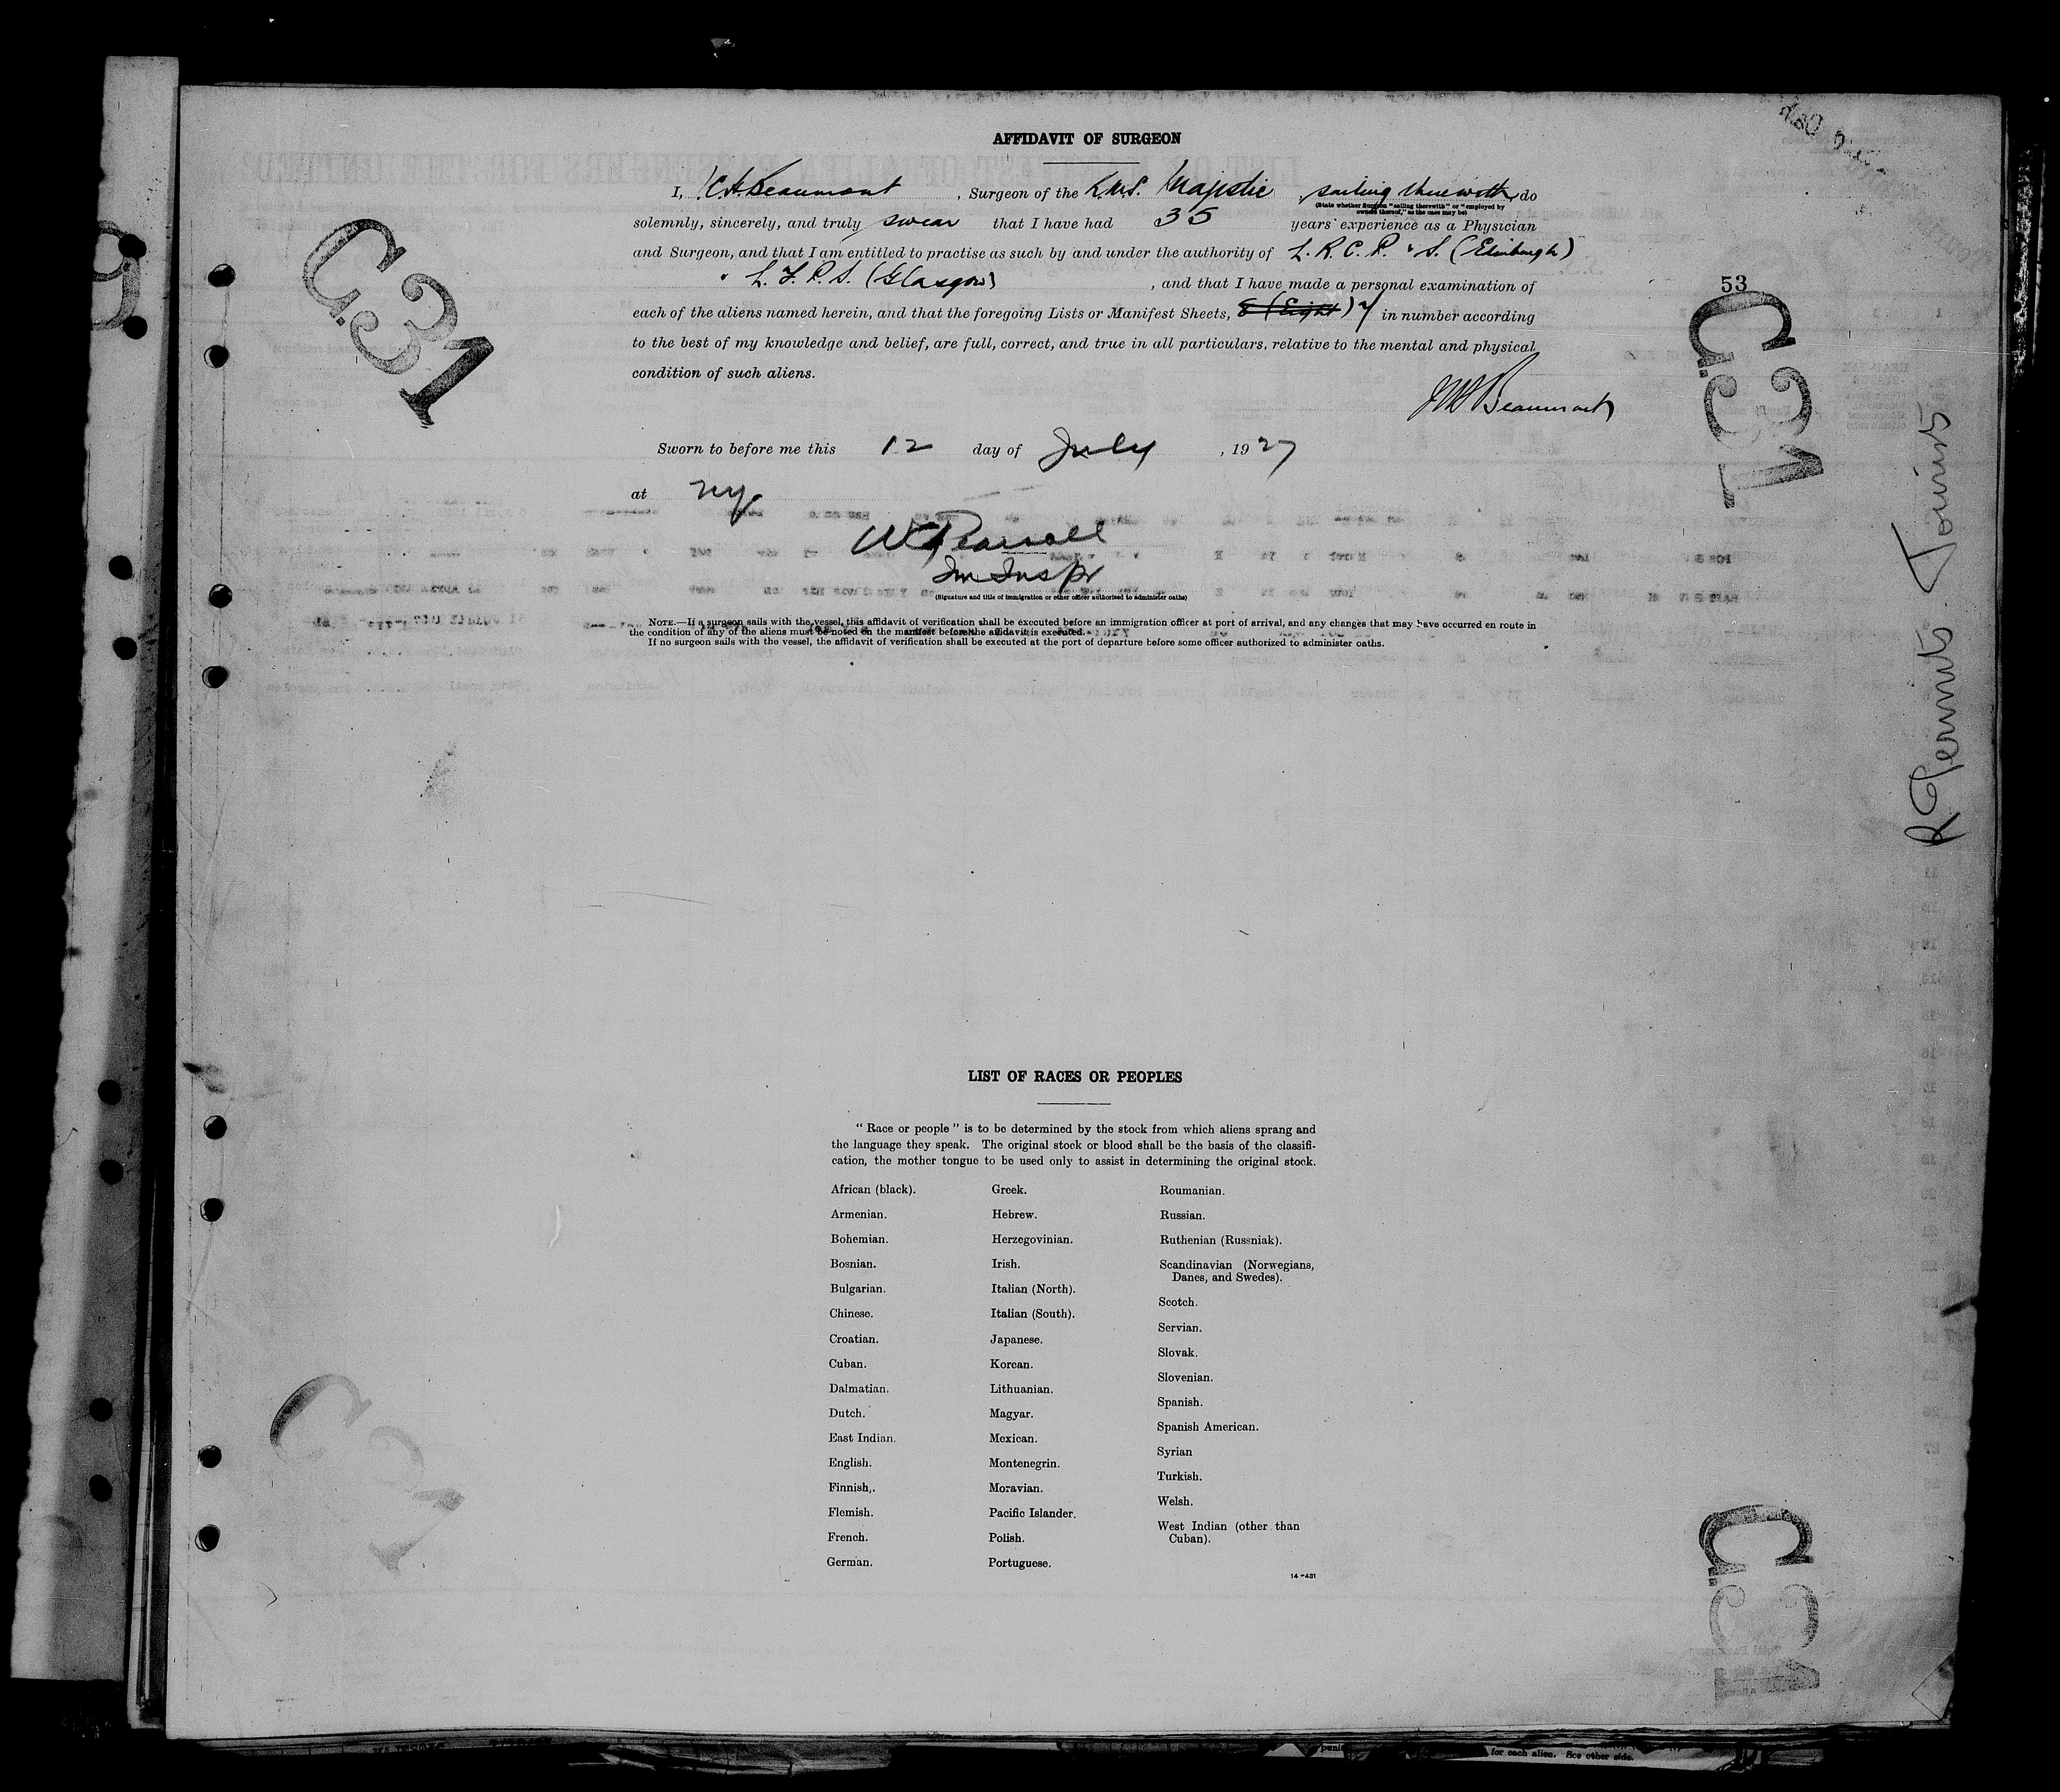 AFFIDAVIT OF SURGEON
I, Beaumont , Surgeon of the R.M.S. Majestic , sailing therewith do
(State whether Surgeon "sailing therewith" or "employed by
owners thereof," as the case may be)
solemnly, sincerely, and truly swear that I have had 35 years' experience as a Physician
and Surgeon, and that I am entitled to practise as such by and under the authority of L.R.C.P. " S. (Edinburgh)
" L.F.P.S. (Glasgow) , and that I have made a personal examination of
53
each of the aliens named herein, and that the foregoing Lists or Manifest Sheets, 8 (Eight) 7 in number according
to the best of my knowledge and belief, are full, correct, and true in all particulars, relative to the mental and physical
condition of such aliens.
Beaumont
Sworn to before me this 12 day of July , 1927
at NY.
Im Inspr
(Signature and title of immigration or other officer authorized to administer oaths)
NOTE.—If a surgeon sails with the vessel, this affidavit of verification shall be executed before an immigration officer at port of arrival, and any changes that may have occurred en route in
the condition of any of the aliens must be noted on the manifest before the affidavit is executed.
If no surgeon sails with the vessel, the affidavit of verification shall be executed at the port of departure before some officer authorized to administer oaths.
C.31
C.31
R Permits. Tourists
LIST OF RACES OR PEOPLES
"Race or people" is to be determined by the stock from which aliens sprang and
the language they speak. The original stock or blood shall be the basis of the classifi-
cation, the mother tongue to be used only to assist in determining the original stock.
African (black).
Armenian.
Bohemian.
Bosnian.
Bulgarian.
Chinese.
Croatian.
Cuban.
Dalmatian.
Dutch.
East Indian.
English.
Finnish,.
Flemish.
French.
German.
Greek.
Hebrew.
Herzegovinian.
Irish.
Italian (North).
Italian (South).
Japanese.
Korean.
Lithuanian.
Magyar.
Mexican.
Montenegrin.
Moravian.
Pacific Islander.
Polish.
Portuguese.
Roumanian.
Russian.
Ruthenian (Russniak).
Scandinavian (Norwegians,
Danes, and Swedes).
Scotch.
Servian.
Slovak.
Slovenian.
Spanish.
Spanish American.
Syrian
Turkish.
Welsh.
West Indian (other than
Cuban).
14—431
C.31
C.31
for each alien. See other side.